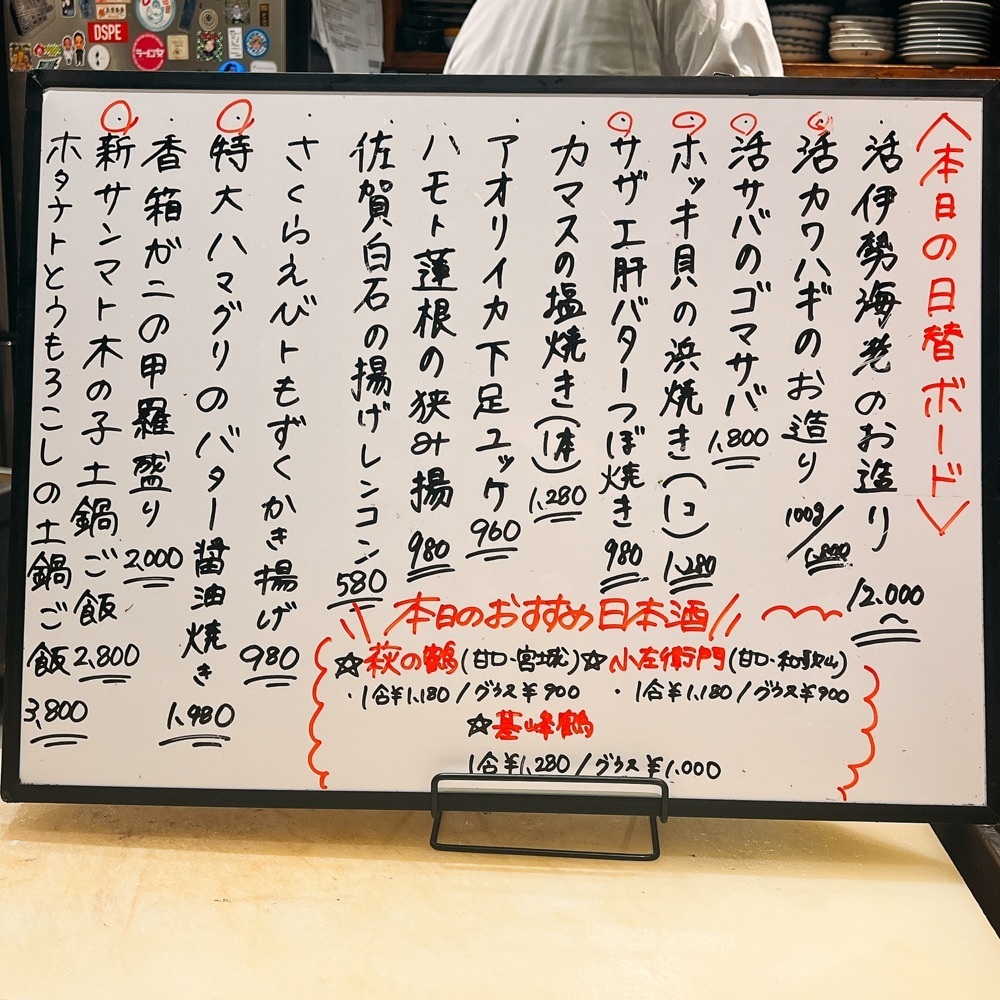 〈本日の日替ボード〉
活伊勢海老のお造り 12.000~
活カワハギのお造り 100g/1,800
活サバのゴマサバ 1,800
ホッキ貝の浜焼き(1コ) 1,280
サザエ肝バターつぼ焼き 980
カマスの塩焼き(1本) 1,280
アオリイカ下足ユッケ 960
ハモト蓮根の狭み揚 980
佐賀白石の揚げレンコン 580
さくらえびトもずくかき揚げ 980
特大ハマグリのバター醤油焼き 1,980
香箱ガニの甲羅盛り 2,000
新サンマト木の子土鍋ご飯 2,800
ホタテトとうもろこしの土鍋ご飯 3,800
\\本日のおすすめ日本酒//
☆萩の鶴(甘口・宮城)☆小左衛門(甘口・和歌山)
・1合¥1,180/グラス¥900 ・1合¥1,180/グラス¥900
☆基峰鶴
1合¥1,280/グラス¥1,000
DSPE